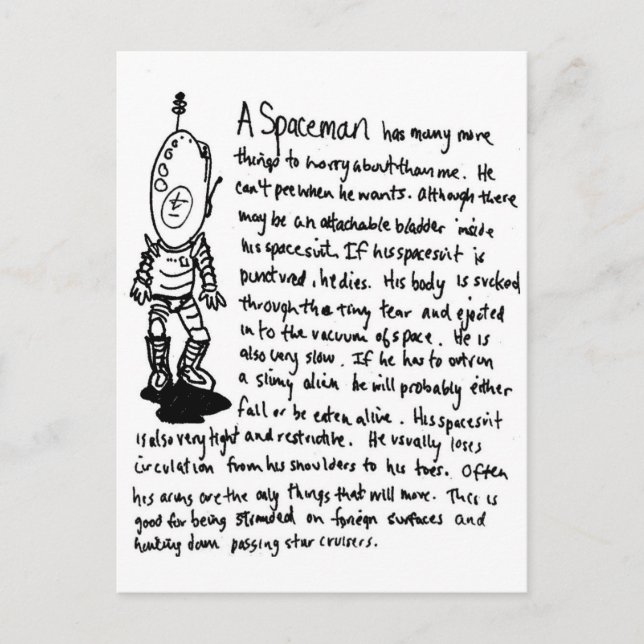 A Spaceman has many more
things to worry about than me. He
can't pee when he wants. Although there
may be an attachable bladder inside
his spacesuit. If his spacesuit is
punctured, he dies. His body is sucked
through the tiny tear and ejected
in to the vacuum of space. He is
also very slow. If he has to outrun
a slimy alien he will probably either
fall or be eaten alive. His spacesuit
is also very tight and restrictive. He usually loses
circulation from his shoulders to his toes. Often
his arms are the only things that will move. This is
good for being stranded on foreign surfaces and
hauling down passing star cruisers.